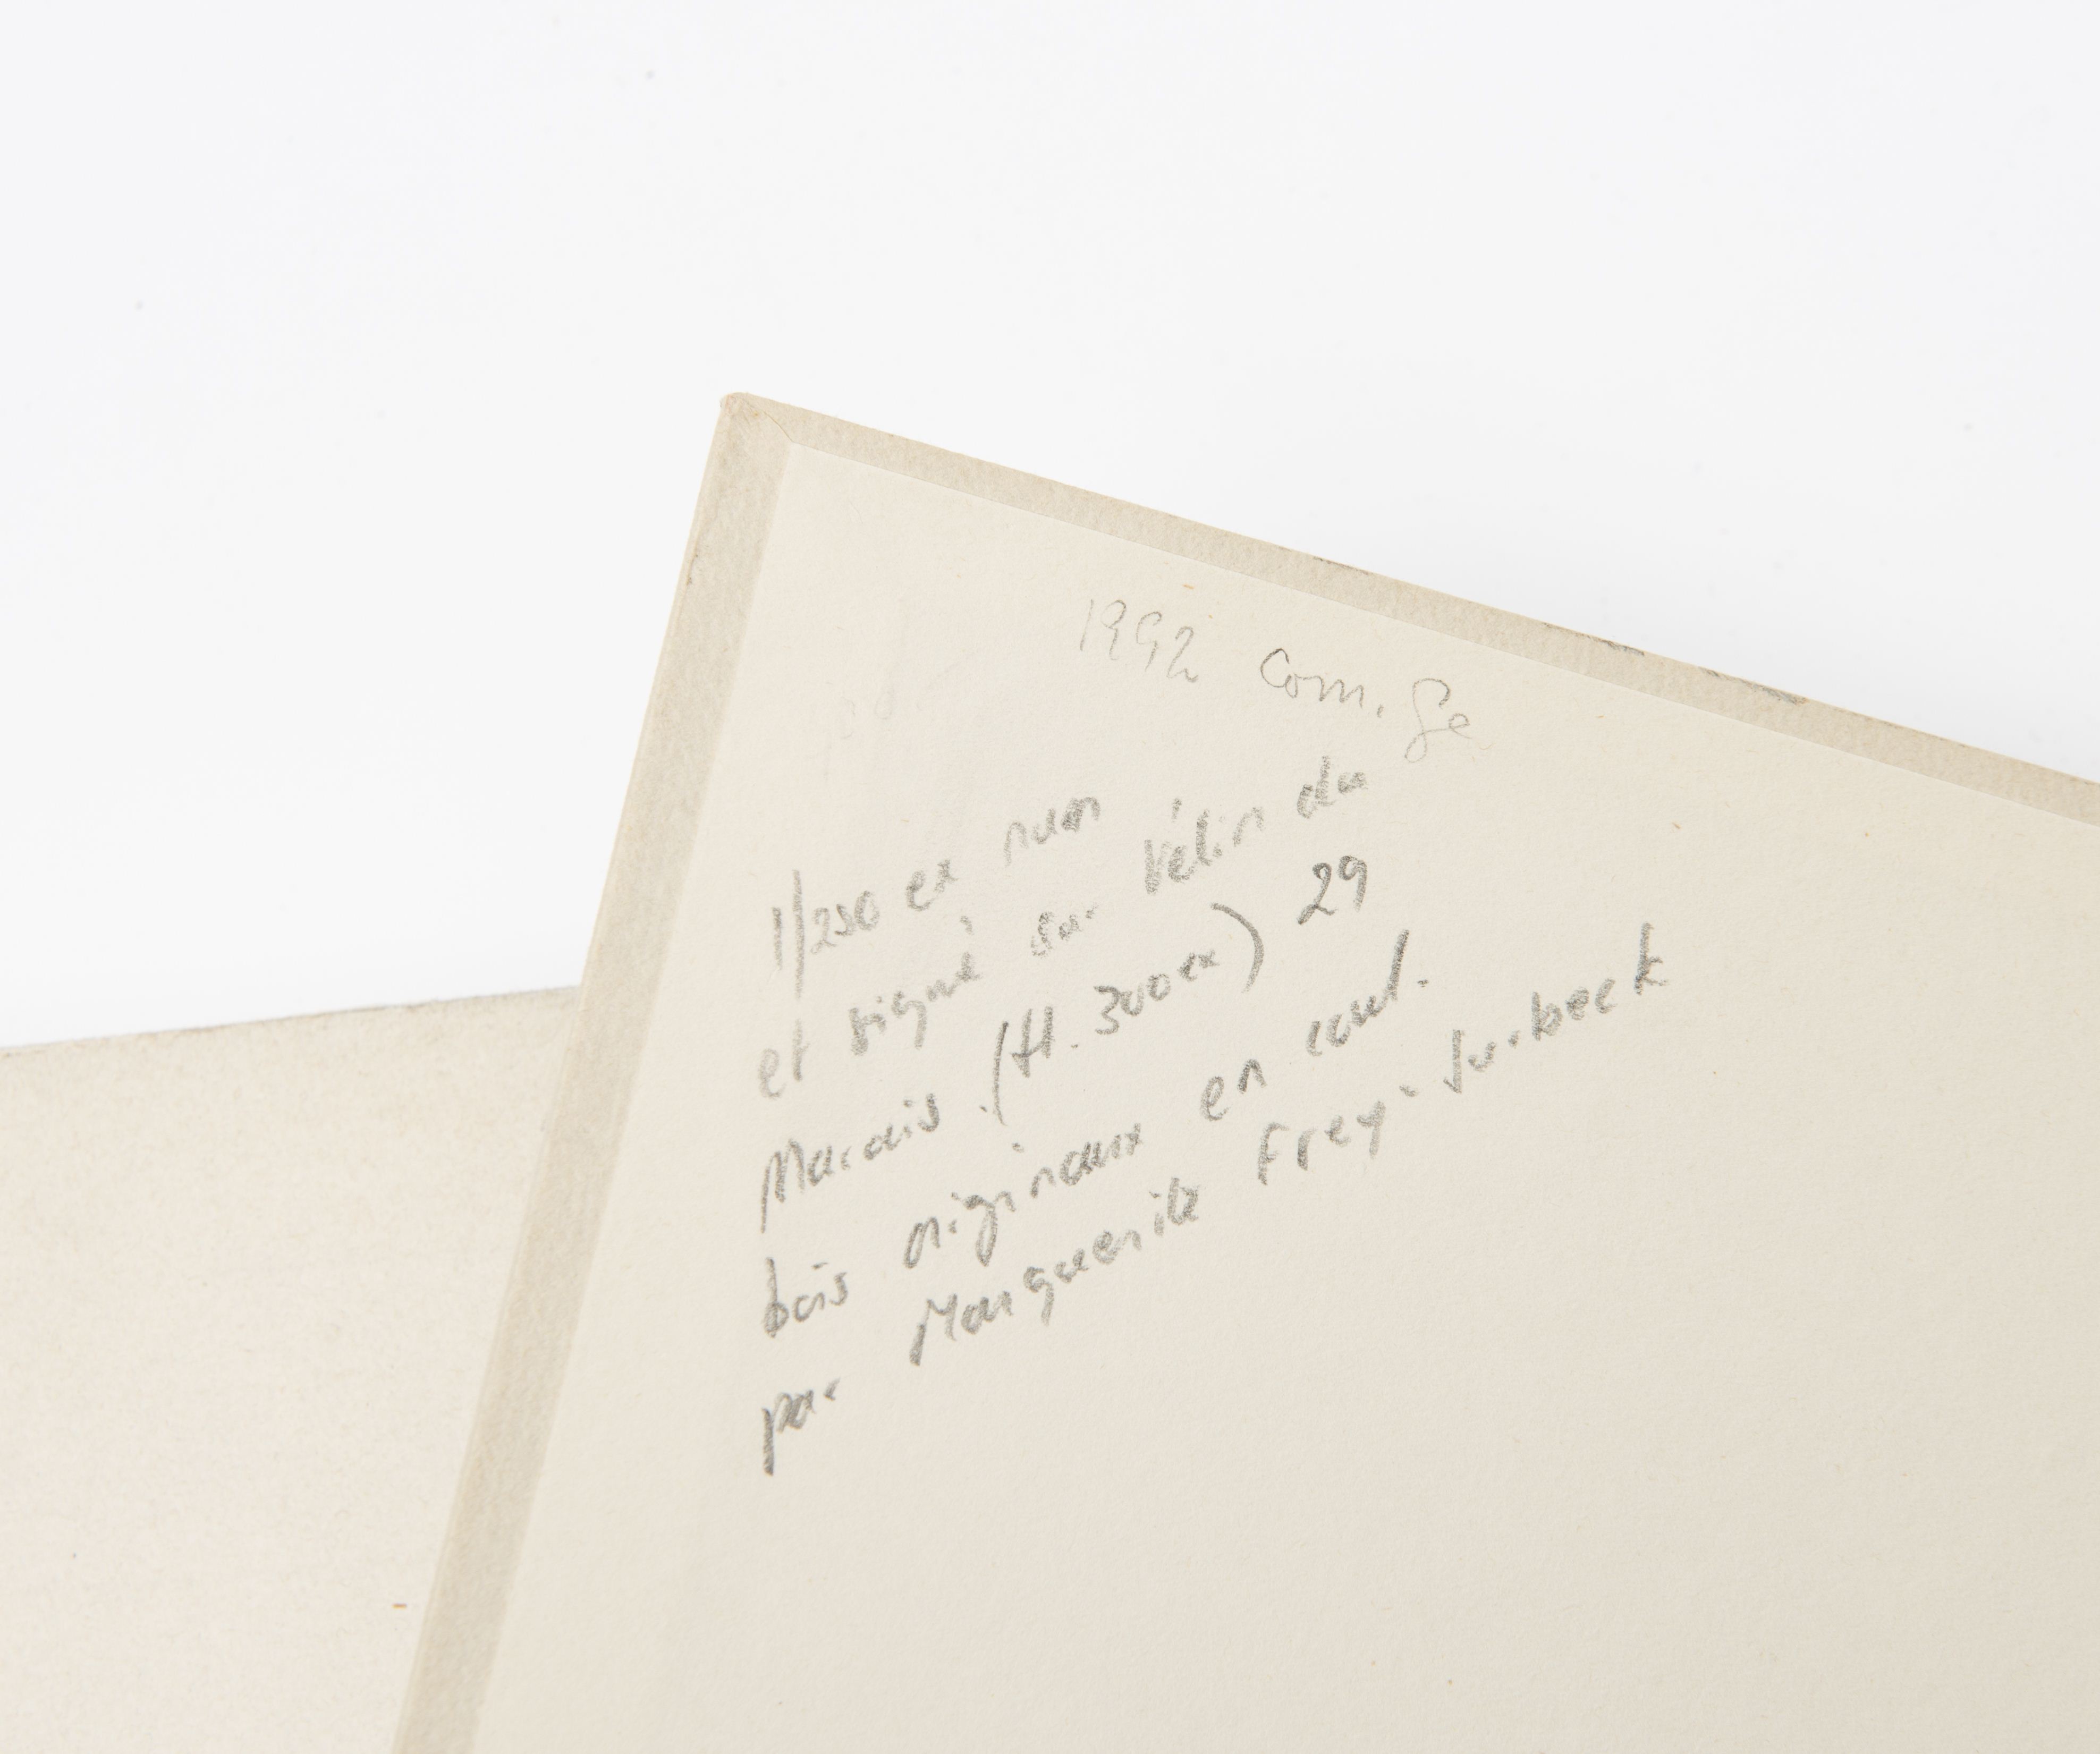 1992 Com. Ge
1/250 ex num
et signé sur Vélin du
Marais (tt. 300 ex) 29
bois originaux en coul.
par Marguerite Frey-Surbeck